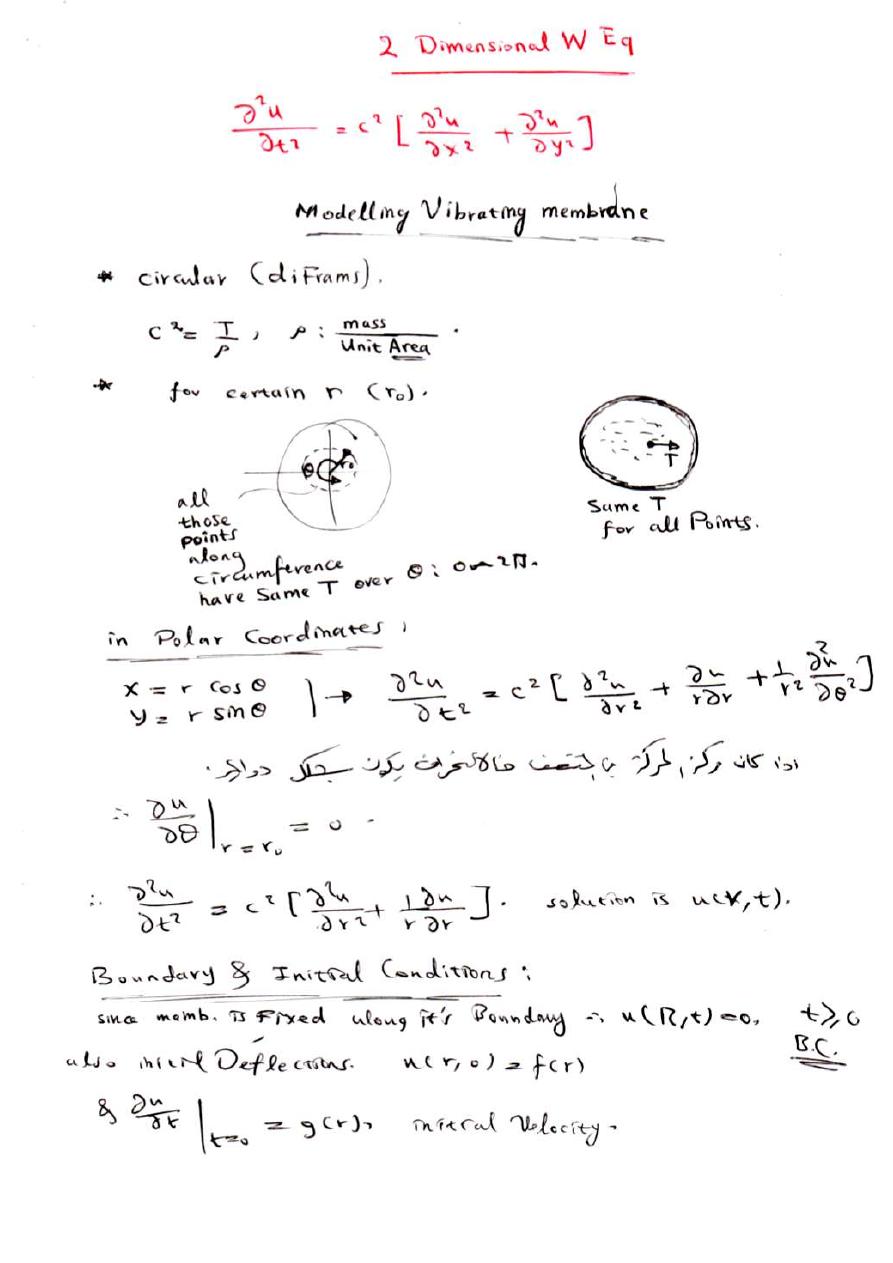 2 Dimensional W Eq
∂²u/∂t² = c² [ ∂²u/∂x² + ∂²u/∂y² ]
Modelling Vibrating membrane
* circular (diFrams).
c² = T/ρ , ρ : mass/Unit Area .
* for certain r (r₀).
θ r₀
all
those
points
along
circumference
have Same T over θ : 0 → 2π.
T
Same T
for all Points.
in Polar Coordinates ,
x = r cos θ
y = r sin θ
→ ∂²u/∂t² = c² [ ∂²u/∂r² + ∂u/r∂r + 1/r² ∂²u/∂θ² ]
اذا كان مركز الحركة بالمنتصف فالانحراف يكون بشكل دوائر.
∴ ∂u/∂θ |r=r₀ = 0 .
∴ ∂²u/∂t² = c² [ ∂²u/∂r² + 1/r ∂u/∂r ] . solution is u(r,t).
Boundary & Initial Conditions :
since memb. is Fixed along it's Boundary ∴ u(R,t)=0, t≥0
B.C.
also initial Deflections. u(r,0) = f(r)
& ∂u/∂t |t=0 = g(r), initial Velocity.